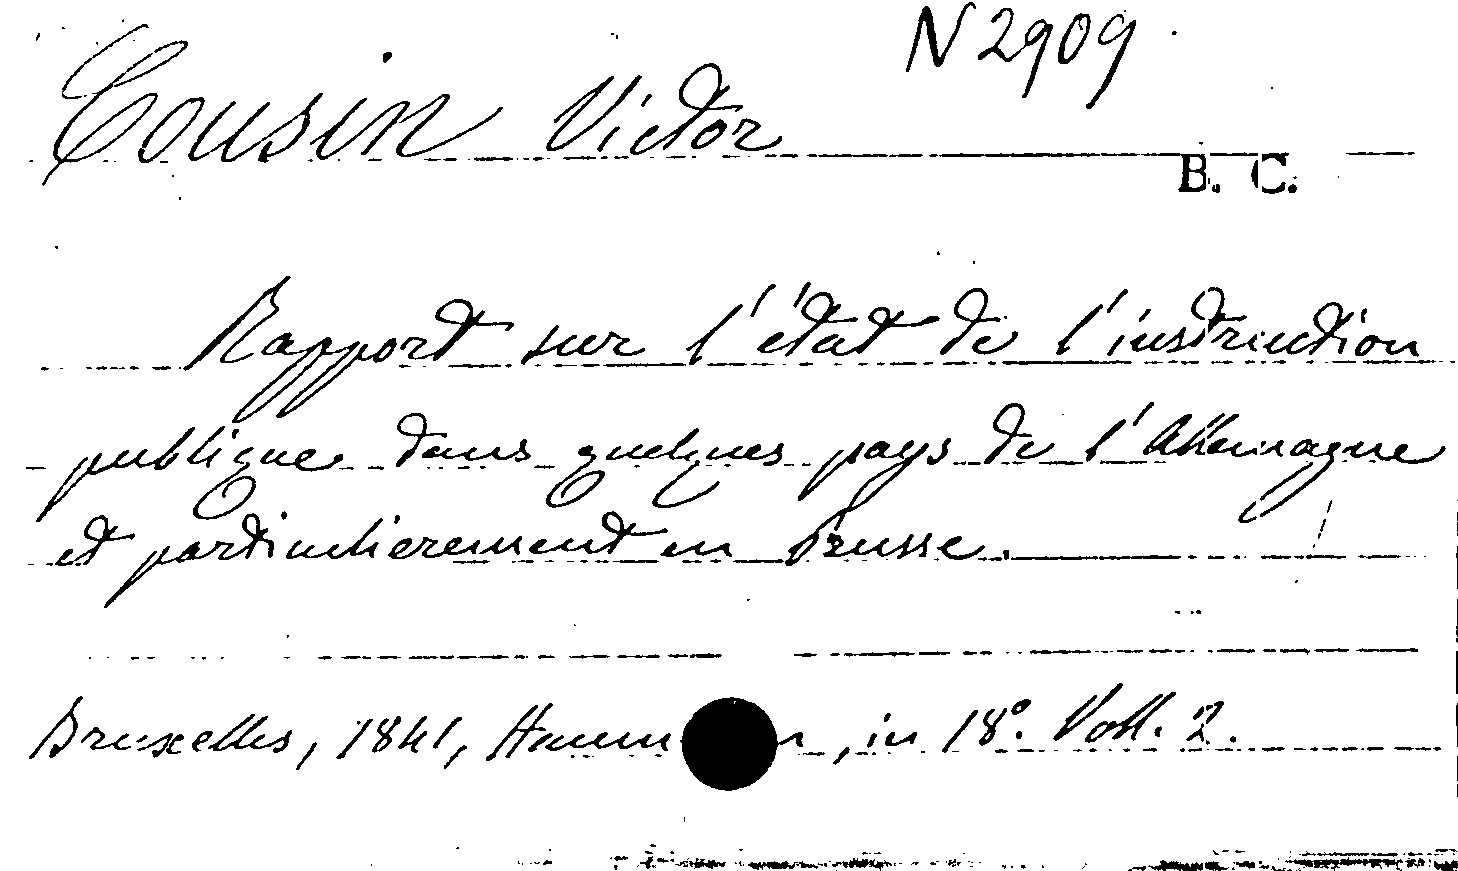 N 2909
Cousin Victor
B. C.
Rapport sur l'état de l'instruction
publique dans quelques pays de l'Allemagne
et particulierement en Prusse.
Bruxelles, 1841, in 18°. Voll. 2.